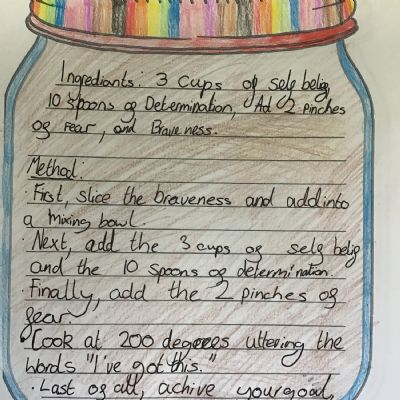 Ingredients: 3 cups of self belig
10 spoons of Determination, Ad 2 pinches
of Fear, and Braveness.
Method:
· First, slice the braveness and add into
a mixing bowl.
· Next, add the 3 cups of self belig
and the 10 spoons of determination.
· Finally, add the 2 pinches of
fear.
· Cook at 200 degrees uttering the
words "I've got this."
· Last of all, achive your goal,